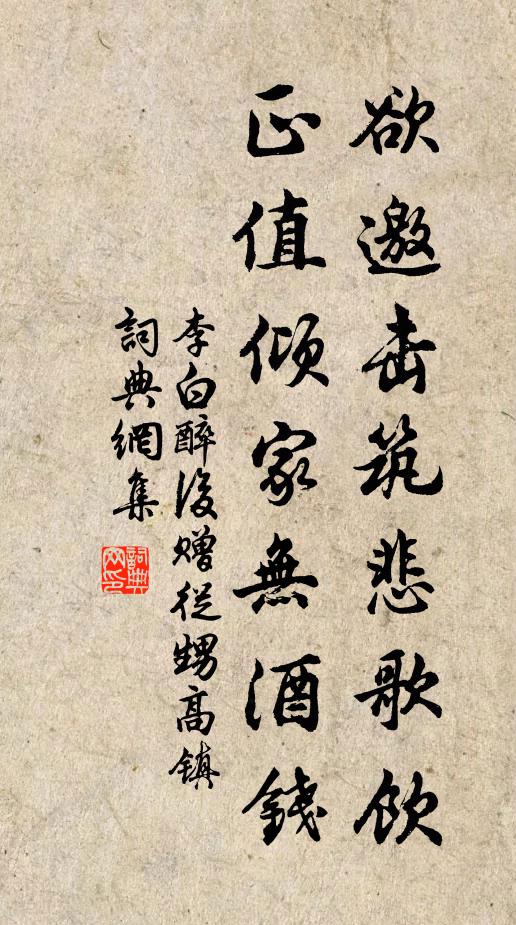 欲邀击筑悲歌饮
正值倾家無酒錢
李白醉後赠从甥高镇
詞典網集
詞典網印